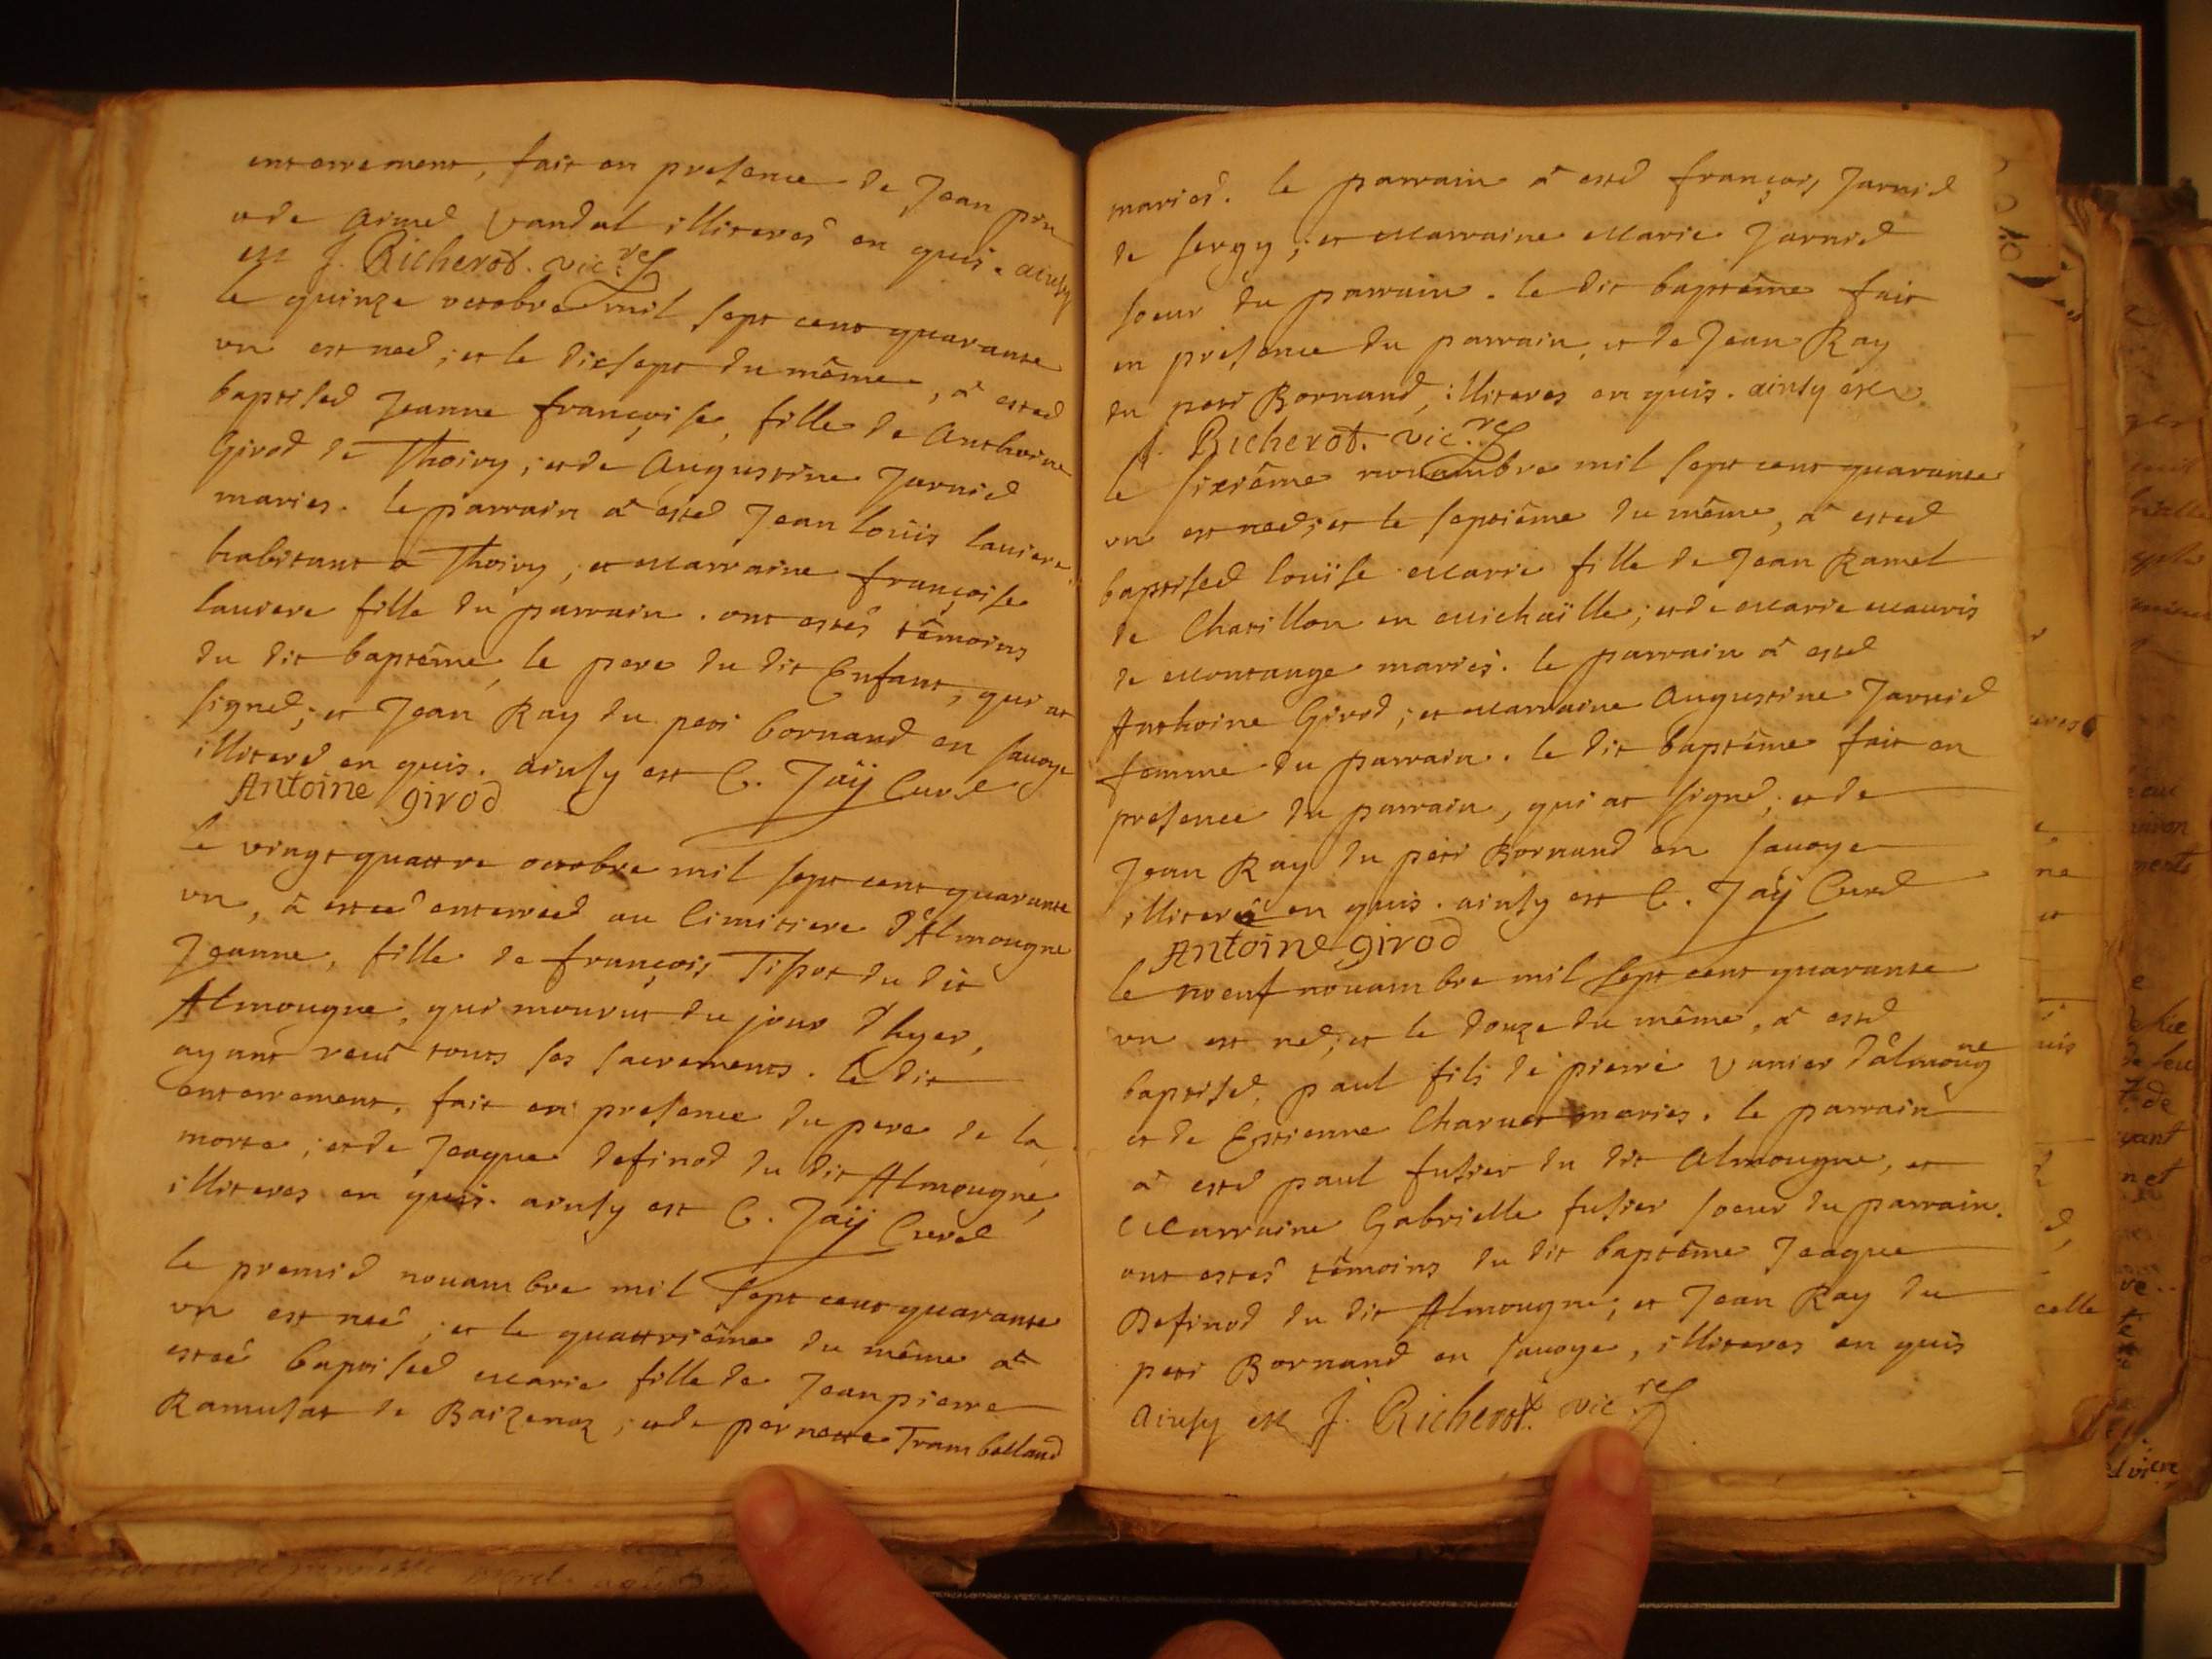 enterrement, fait en presence de Jean pin
et de Aimé Vandal illiteres en quis. ainsy
est J. Richerot. vic.re
le quinze octobre mil sept cent quarante
un est neé; et le dicsept du même, a esteé
baptiseé Jeanne françoise, fille de Anthoine
Girod de Thoiry; et de Augustine Jarnié
maries. le parrain a esté Jean loüis laviere
habitant a Thoiry, et Marraine françoise
laviere fille du parrain. ont estés têmoins
du dit baptême, le pere du dit Enfant, qui at
signé; et Jean Ray du peti bornand en savoye
illiteré en quis. ainsy est C. Jaÿ Curé
Antoine girod
le vingt quattre octobre mil sept cent quarante
un, a esteé enterreé au Cimitiere d'Almougne
Jeanne, fille de françois Tissot du dit
Almougne, qui mourut du jour d'hyer,
ayant receu touts ses sacrements. le dit
enterrement, fait en presence du pere de la
morte; et de Jeaque Definod du dit Almougne,
illiteres en quis. ainsy est C. Jaÿ Curé
le premié nouambre mil sept cent quarante
un est neé; et le quattriême du même at
esteé baptiseé Marie fille de Jean pierre
Ramusat de Baizenaz; et de pernette Tramballand
mariés. le parrain a esté françois Jarnié
de sergy; et Marraine Marie Jarnié
soeur du parrain. le dit baptême fait
en presence du parrain, et de Jean Ray
du peti Bornand, illiteres en quis. ainsy est
J. Richerot. vic.re
le sixiême nouambre mil sept cent quarante
un est neé; et le septiême du même, a esteé
baptiseé loüise Marie fille de Jean Ramel
de Chatillon en Michaïlle; et de Marie Mauris
de Montange mariés. le parrain a esté
Anthoine Girod; et Marraine Augustine Jarnié
femme du parrain. le dit baptême fait en
presence du parrain, qui at signé; et de
Jean Ray du peti Bornand en savoye
illiteré en quis. ainsy est C. Jaÿ Curé
Antoine girod
le noeuf nouambre mil sept cent quarante
un est né; et le douze du même, a esté
baptisé, paul fils de pierre Vanier d'almougne
et de Estienne Charvet maries. le parrain
a esté paul fusier du dit Almougne, et
Marraine Gabrielle fusier soeur du parrain.
ont estés têmoins du dit baptême Jeaque
Definod du dit Almougne; et Jean Ray du
peti Bornand en savoye, illiteres en quis
Ainsy est J. Richerot. vic.re